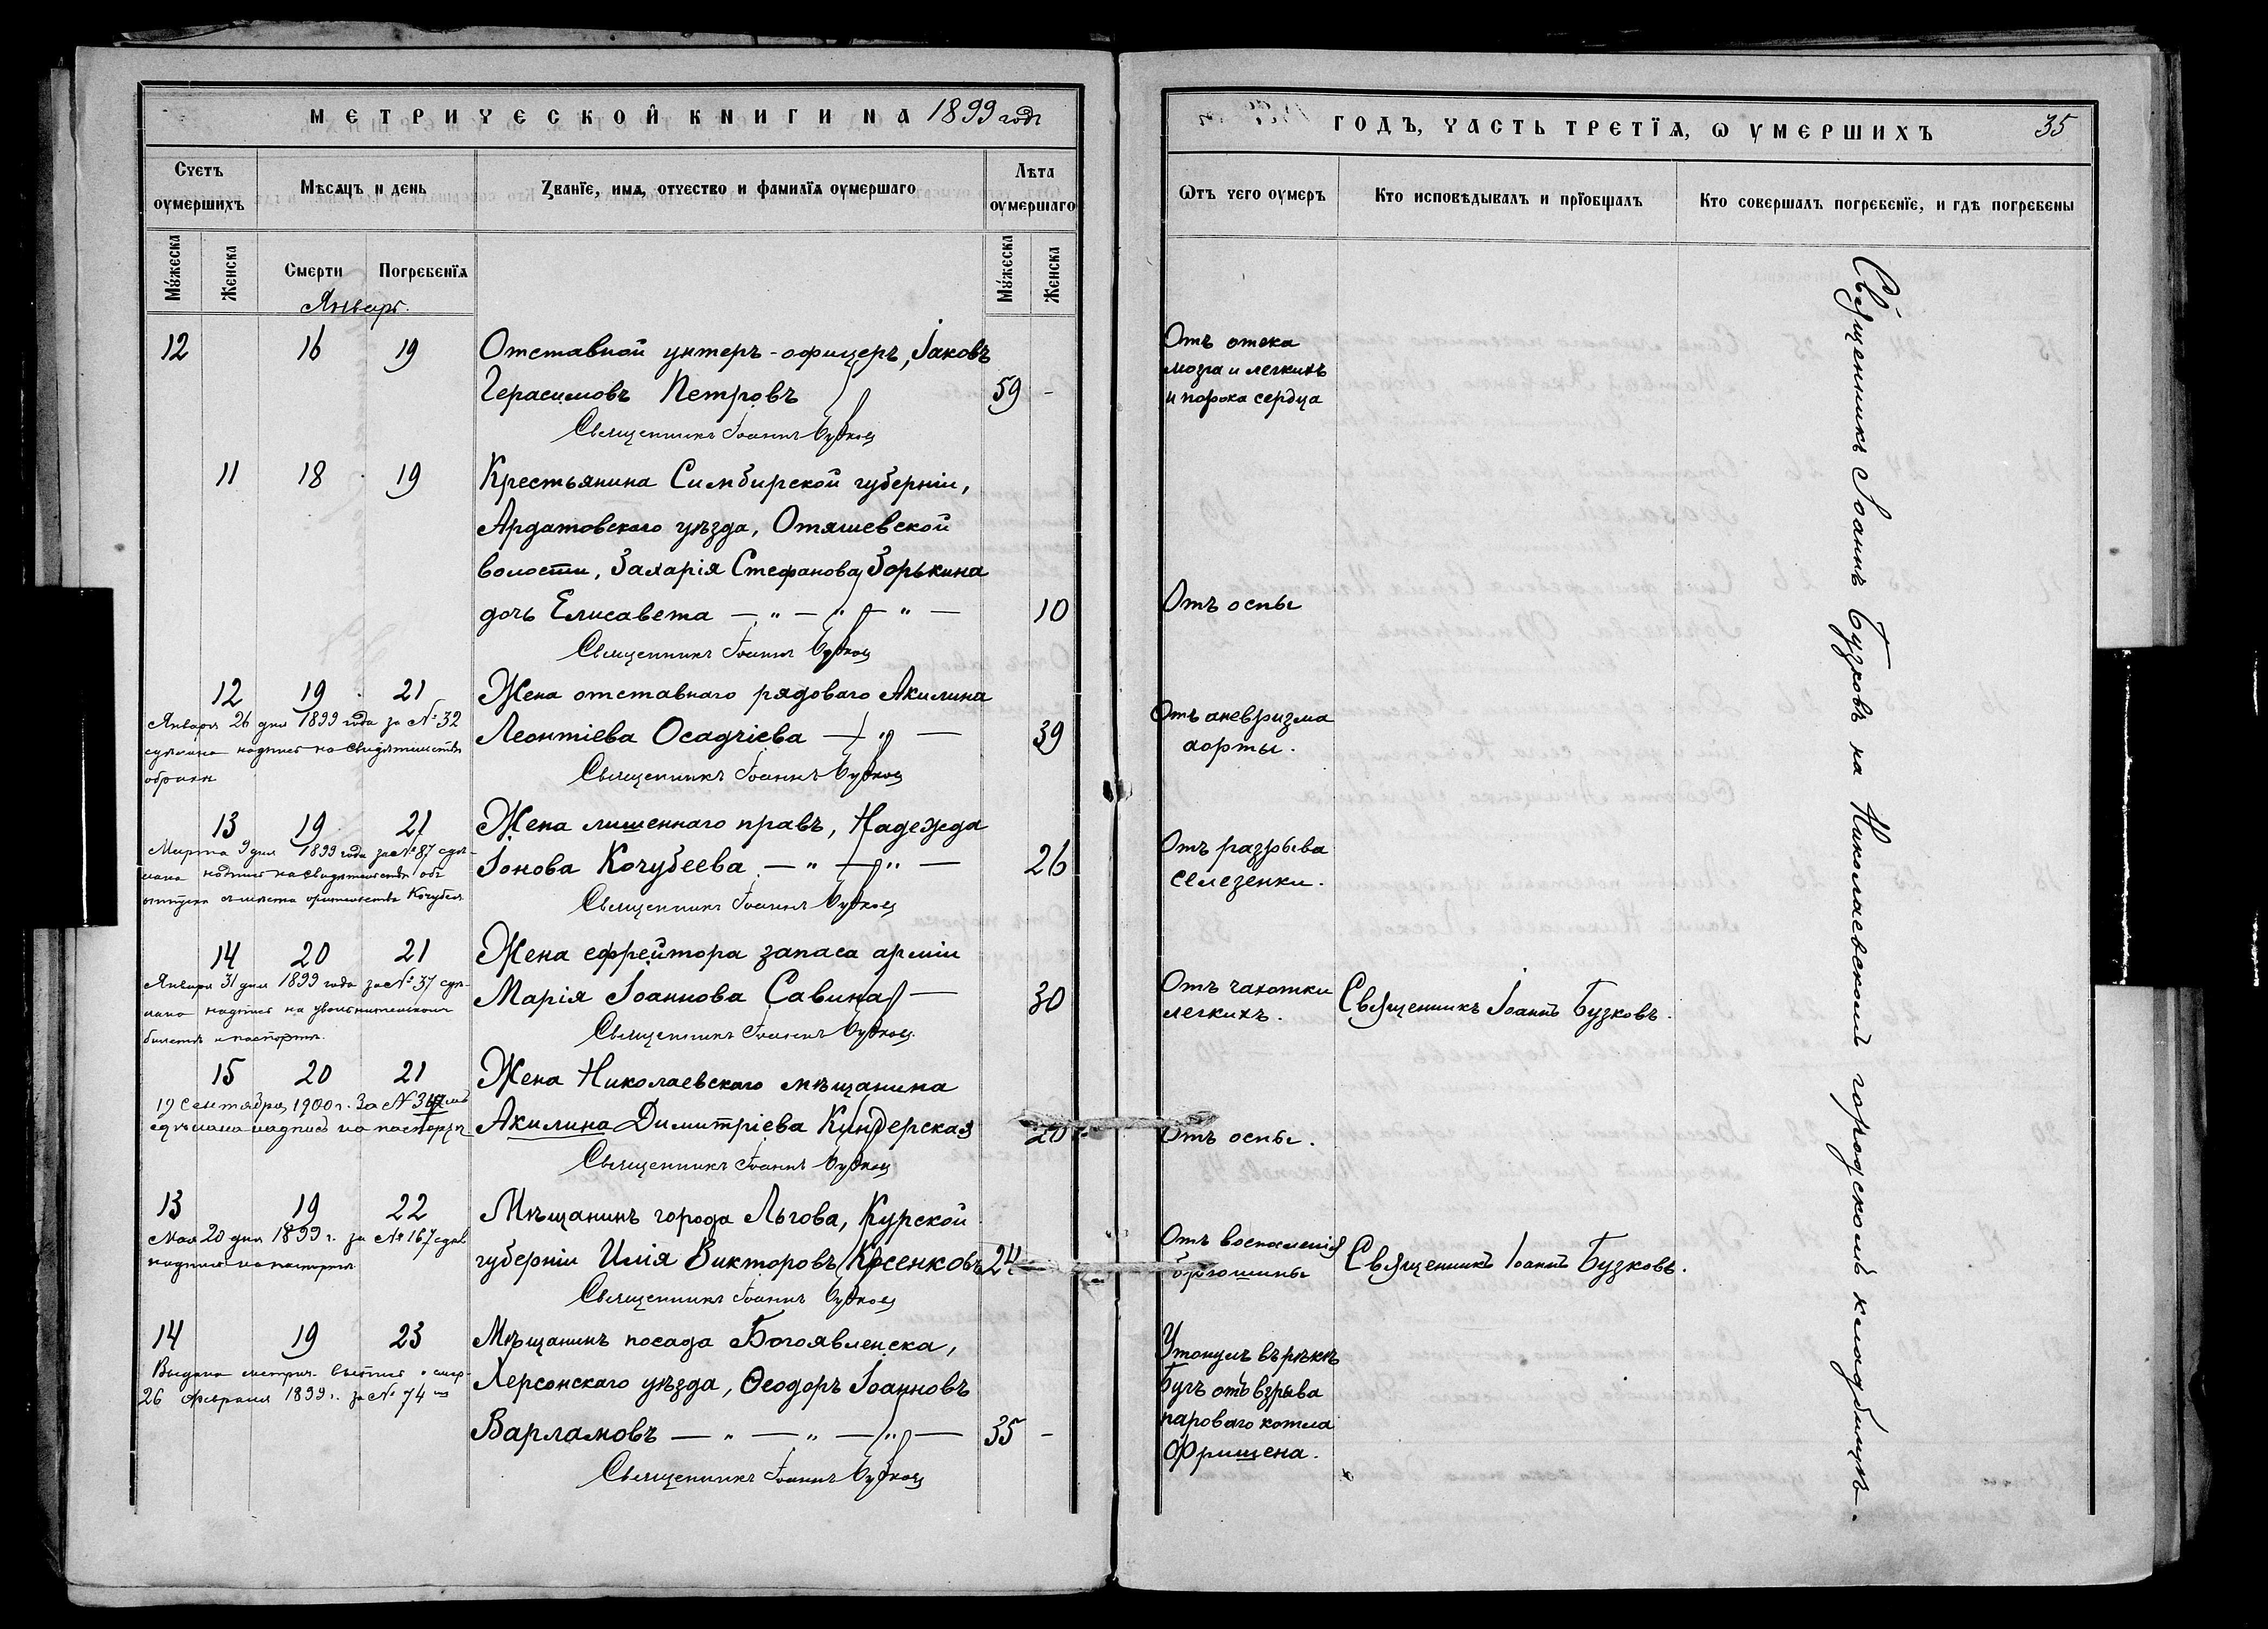 МЕТРИЧЕСКОЙ КНИГИ НА 1899 годъ
Счетъ оумершихъ
Мѣсяцъ и день
Званїе, имя, отчество и фамилїя оумершаго
Лѣта оумершаго
Мꙋжеска
Женска
Смерти
Погребенїя
Мꙋжеска
Женска
Январь.
12 16 19 Отставной унтеръ-офицеръ, Іаковъ
Герасимовъ Петровъ 59 -
Священникъ Іоаннъ Бузковъ
11 18 19 Крестьянина Симбирской губерніи,
Ардатовскаго уѣзда, Отяшевской
волости, Захарія Стефанова Зорькина
дочь Елисавета — „ — „ — „ — 10
Священникъ Іоаннъ Бузковъ
12 19 21 Жена отставнаго рядоваго Акилина
Января 26 дня 1899 года за № 32
Леонтіева Осадчіева — „ — 39
сдѣлана надпись на свидѣтельствѣ
Священникъ Іоаннъ Бузковъ
13 19 21 Жена лишеннаго правъ, Надежда
Марта 9 дня 1899 года за № 87 сдѣ-
Іонова Кочубеева — „ — „ — 26
лана надпись на свидѣтельствѣ объ
Кочубея
Священникъ Іоаннъ Бузковъ
14 20 21 Жена ефрейтора запаса арміи
Января 31 дня 1899 года за № 37 сдѣ-
Марія Іоаннова Савина — 30
лана надпись на увольнительномъ
билетѣ и паспортѣ.
Священникъ Іоаннъ Бузковъ.
15 20 21 Жена Николаевскаго мѣщанина
19 Сентября 1900 г. За №
сдѣлана надпись на паспортѣ
Акилина Димитріева Кундерская 20
Священникъ Іоаннъ Бузковъ
13 19 22 Мѣщанинъ города Льгова, Курской
Мая 20 дня 1899 г. за № 167 сдѣл
губерніи Илія Викторовъ 24
надпись на паспортѣ
Священникъ Іоаннъ Бузковъ
14 19 23 Мѣщанинъ посада Богоявленска,
Выдана метрич. выпись о смер.
Херсонскаго уѣзда, Ѳеодоръ Іоанновъ
26 Февраля 1899 г. за № 74
Варламовъ — „ — „ — „ — 35 -
Священникъ Іоаннъ Бузковъ
ГОДЪ, ЧАСТЬ ТРЕТЇЯ, Ѡ ОУМЕРШИХЪ 35
Ѿтъ чего оумеръ
Кто исповѣдывалъ и прїобщалъ
Кто совершалъ погребенїе, и гдѣ погребены
Отъ отека
мозга и легкихъ
и порока сердца
Отъ оспы
Отъ аневризма
аорты.
Отъ разрыва
селезенки.
Отъ чахотки
легкихъ.
Священникъ Іоаннъ Бузковъ.
Отъ оспы.
Отъ воспаленія
брюшины
Священникъ Іоаннъ Бузковъ.
Утонулъ въ рѣкѣ
Бугъ отъ взрыва
пароваго котла
Фришена.
Священникъ Іоаннъ Бузковъ на Николаевскомъ городскомъ кладбищѣ.